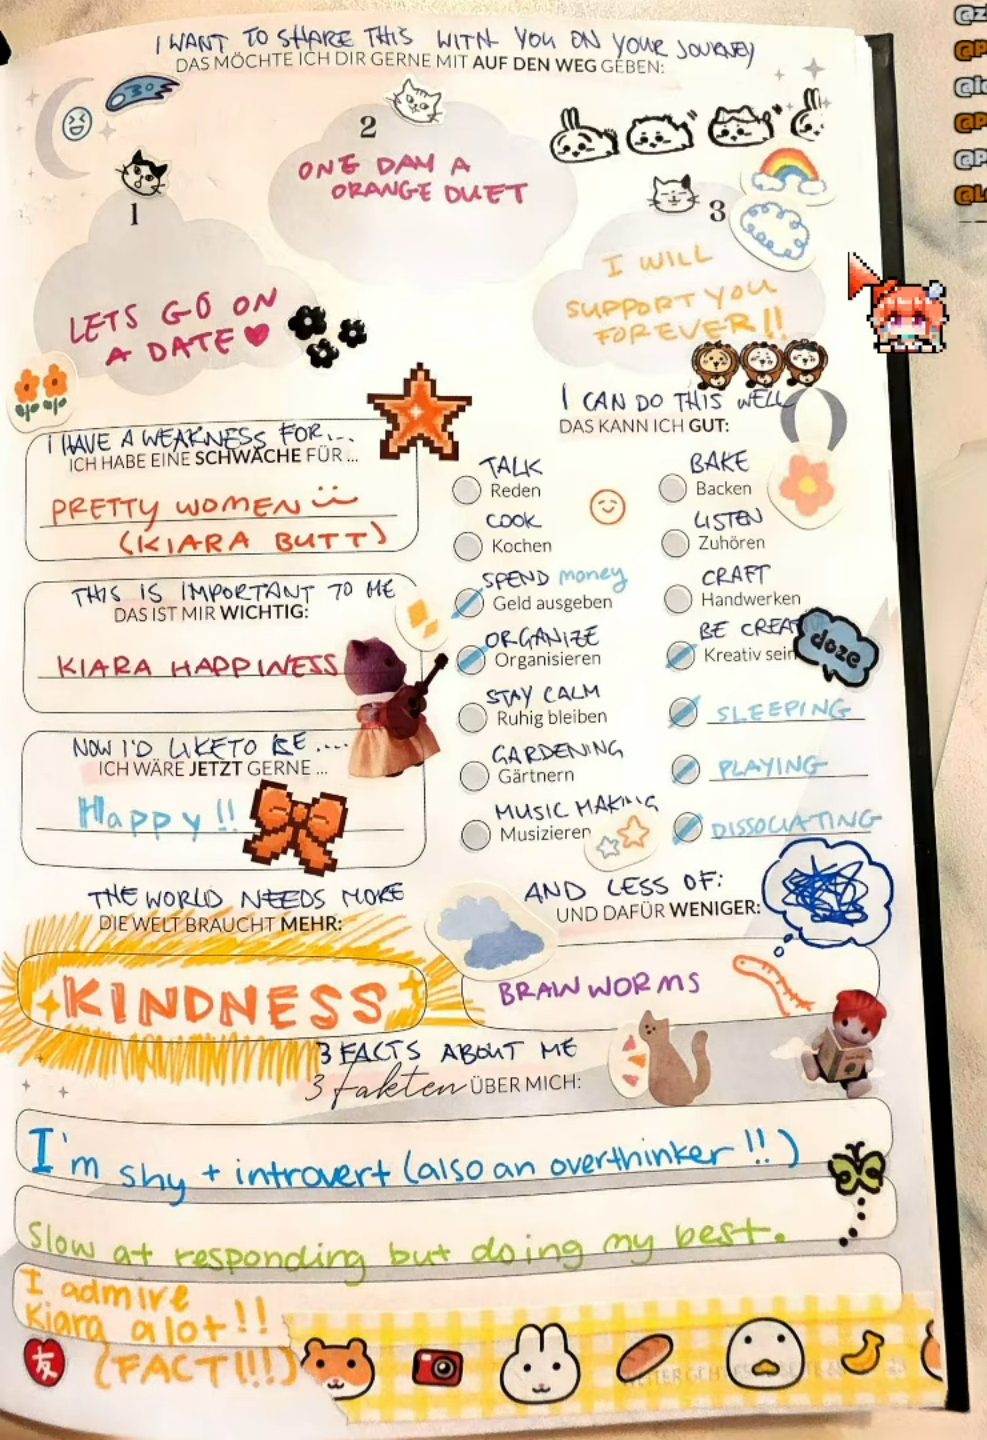 I WANT TO SHARE THIS WITH YOU ON YOUR JOURNEY
DAS MÖCHTE ICH DIR GERNE MIT AUF DEN WEG GEBEN:
1
LETS GO ON
A DATE
2
ONE DAY A
ORANGE DUET
3
I WILL
SUPPORT YOU
FOREVER!!
I HAVE A WEAKNESS FOR...
ICH HABE EINE SCHWÄCHE FÜR ...
PRETTY WOMEN
(KIARA BUTT)
THIS IS IMPORTANT TO ME
DAS IST MIR WICHTIG:
KIARA HAPPINESS
NOW I'D LIKE TO BE ....
ICH WÄRE JETZT GERNE ...
Happy!!
I CAN DO THIS WELL
DAS KANN ICH GUT:
TALK
Reden
COOK
Kochen
SPEND money
Geld ausgeben
ORGANIZE
Organisieren
STAY CALM
Ruhig bleiben
GARDENING
Gärtnern
MUSIC MAKING
Musizieren
BAKE
Backen
LISTEN
Zuhören
CRAFT
Handwerken
BE CREAT
Kreativ sein
doze
SLEEPING
PLAYING
DISSOCIATING
THE WORLD NEEDS MORE
DIE WELT BRAUCHT MEHR:
KINDNESS
AND LESS OF:
UND DAFÜR WENIGER:
BRAIN WORMS
3 FACTS ABOUT ME
3 Fakten ÜBER MICH:
I'm shy + introvert (also an overthinker!!)
Slow at responding but doing my best.
I admire
Kiara alot!!
(FACT!!!)
友